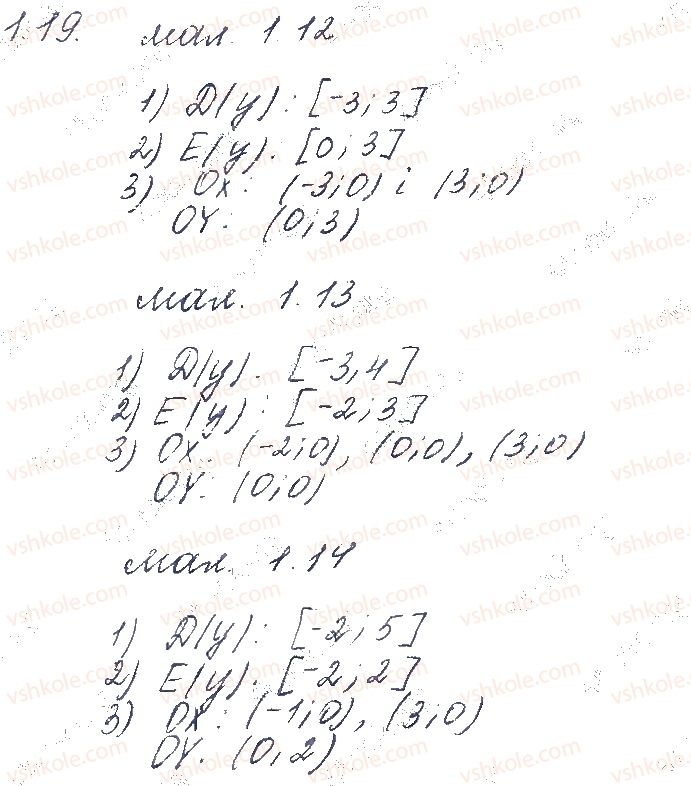 1.19. мал. 1.12
1) D(y): [-3; 3]
2) E(y). [0; 3]
3) OX: (-3; 0) і (3; 0)
OY: (0; 3)
мал. 1.13
1) D(y). [-3, 4]
2) E(y): [-2; 3]
3) OX: (-2; 0), (0; 0), (3; 0)
OY. (0; 0)
мал. 1.14
1) D(y): [-2; 5]
2) E(y). [-2; 2]
3) OX: (-1; 0), (3; 0)
OY. (0; 2)